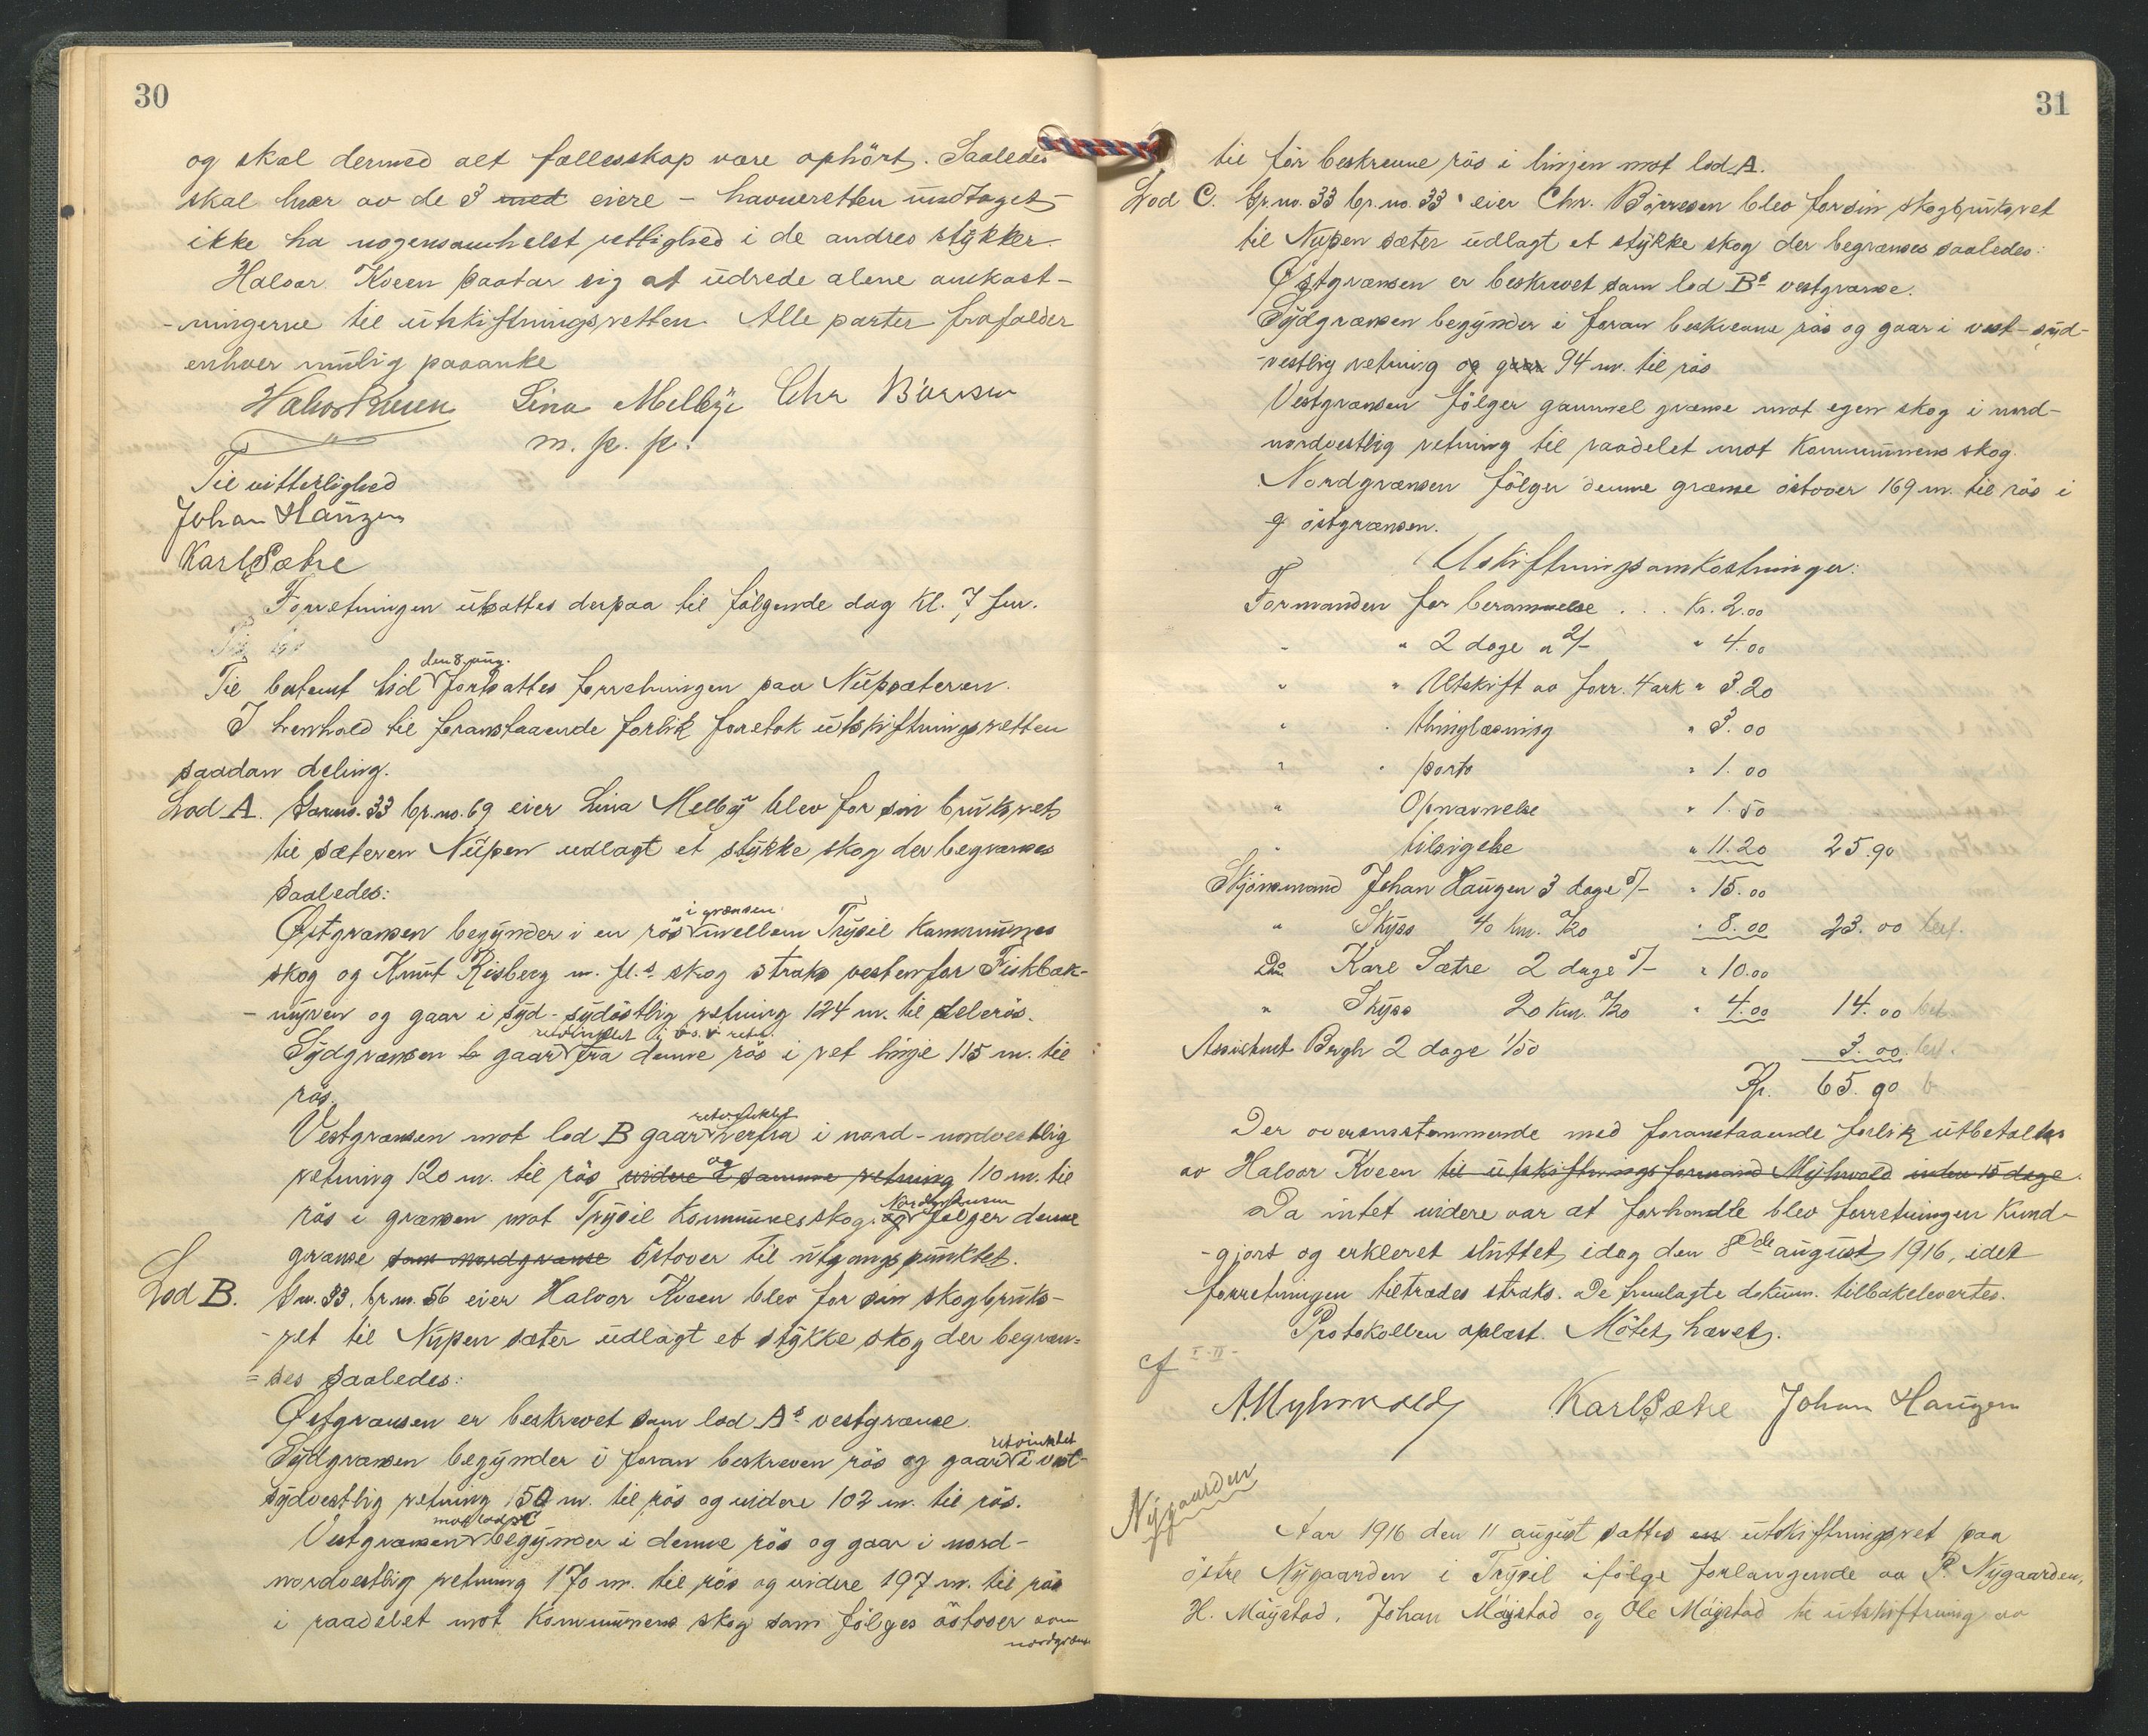 30
og skal dermed alt fællesskap være ophört. Saaledes
skal hver av de 3 med eiere – havneretten undtaget –
ikke ha nogensomhelst rettighed i de andres stykker.
Halvor Kveen paatar sig at udrede alene omkost-
-ningerne til utskiftningsretten. Alle parter frafalder
enhver mulig paaanke
Halvor Kveen Lina Melbye Chr Börresen
m. p. p.
Til vitterlighed
Johan Haugen
Karl Sætre
Forretningen utsattes derpaa til fölgende dag kl. 7 fm.
den 8 aug.
Til bestemt tid fortsattes forretningen paa Nupsæteren.
I henhold til foranstaaende forlik foretok utskiftningsretten
saadan deling.
Lod A. Garno. 33 br.no. 69 eier Lina Melby blev for sin bruksret
til sæteren Nupen udlagt et stykke skog der begrænses
saaledes:
i grænsen
Østgrænsen begynder i en rös mellem Trysil Kommunes
skog og Knut Risberg m. fl.s skog straks vestenfor Fiskbæk-
-myren og gaar i syd-sydöstlig retning 124 m. til delerös.
retvinklet
Sydgrænsen gaar fra denne rös i ret linje 115 m. til
rös.
retvinklet
Vestgrænsen mot lod B gaar herfra i nord-nordvestlig
retning 120 m. til rös og videre i samme retning 110 m. til
Nordgrænsen
rös i grænsen mot Trysil Kommunes skog. og fölger denne
grænse som nordgrænse östover til utgangspunktet.
Lod B. Gno. 33. br.no. 56 eier Halvor Kveen blev for sin skogbruks-
-ret til Nupen sæter udlagt et stykke skog der begræn=
=ses saaledes:
Østgrænsen er beskrevet som lod As vestgrænse.
retvinklet
Sydgrænsen begynder i foran beskreven rös og gaar i vest-
sydvestlig retning 150 m. til rös og videre 102 m. til rös.
mot lod C
Vestgrænsen begynder i denne rös og gaar i nord-
nordvestlig retning 170 m. til rös og videre 197 m. til rös
i raadelet mot Kommunens skog som fölges östover som
nordgrænse
31
til för beskrevne rös i linjen mot lod A.
Lod C. Gr.no. 33 br.no. 33 eier Chr. Börresen blev for sin skogbruksret
til Nupen sæter udlagt et stykke skog der begrænses saaledes:
Østgrænsen er beskrevet som lod Bs vestgrænse.
Sydgrænsen begynder i foran beskrevne rös og gaar i vest-syd-
-vestlig retning og gaar 94 m. til rös
Vestgrænsen fölger gammel grænse mot egen skog i nord-
nordvestlig retning til raadelet mot Kommunens skog.
Nordgrænsen fölger denne grænse östover 169 m. til rös i
östgrænsen.
Utskiftningsomkostninger:
Formanden for berammelse . . . Kr. 2.00
" " 2 dage a 2/- " 4.00
" " Utskrift av forr. 4 ark " 3.20
" " thinglæsning " 3.00
" " porto " 1.00
" Opnævnelse " 1.50
" tilsigelse " 11.20 25.90
Skjönsmand Johan Haugen 3 dage 5/- " 15.00
" Skyss 40 km. /20 " 8.00 23.00 bet.
Do Karl Sætre 2 dage 5/- " 10.00
" Skyss 20 km. /20 " 4.00 14.00 bet.
Assistent Bergh 2 dage 1/50 3.00 bet.
Kr. 65.90
Der overensstemmende med foranstaaende forlik utbetaltes
av Halvor Kveen til utskiftningsformand Myhrvold inden 15 dage.
Da intet videre var at forhandle blev forretningen kund-
-gjort og erkleret sluttet idag den 8de august 1916, idet
forretningen tiltrædes straks. De fremlagte dokum. tilbakelevertes.
Protokollen oplæst. Mötet hævet.
cf I-II-
A. Myhrvold Karl Sætre Johan Haugen
Nygaarden
Aar 1916 den 11 august sattes en utskiftningsret paa
östre Nygaarden i Trysil ifölge forlangende av P. Nygaarden,
H. Möystad, Johan Möystad og Ole Möystad til utskiftning av